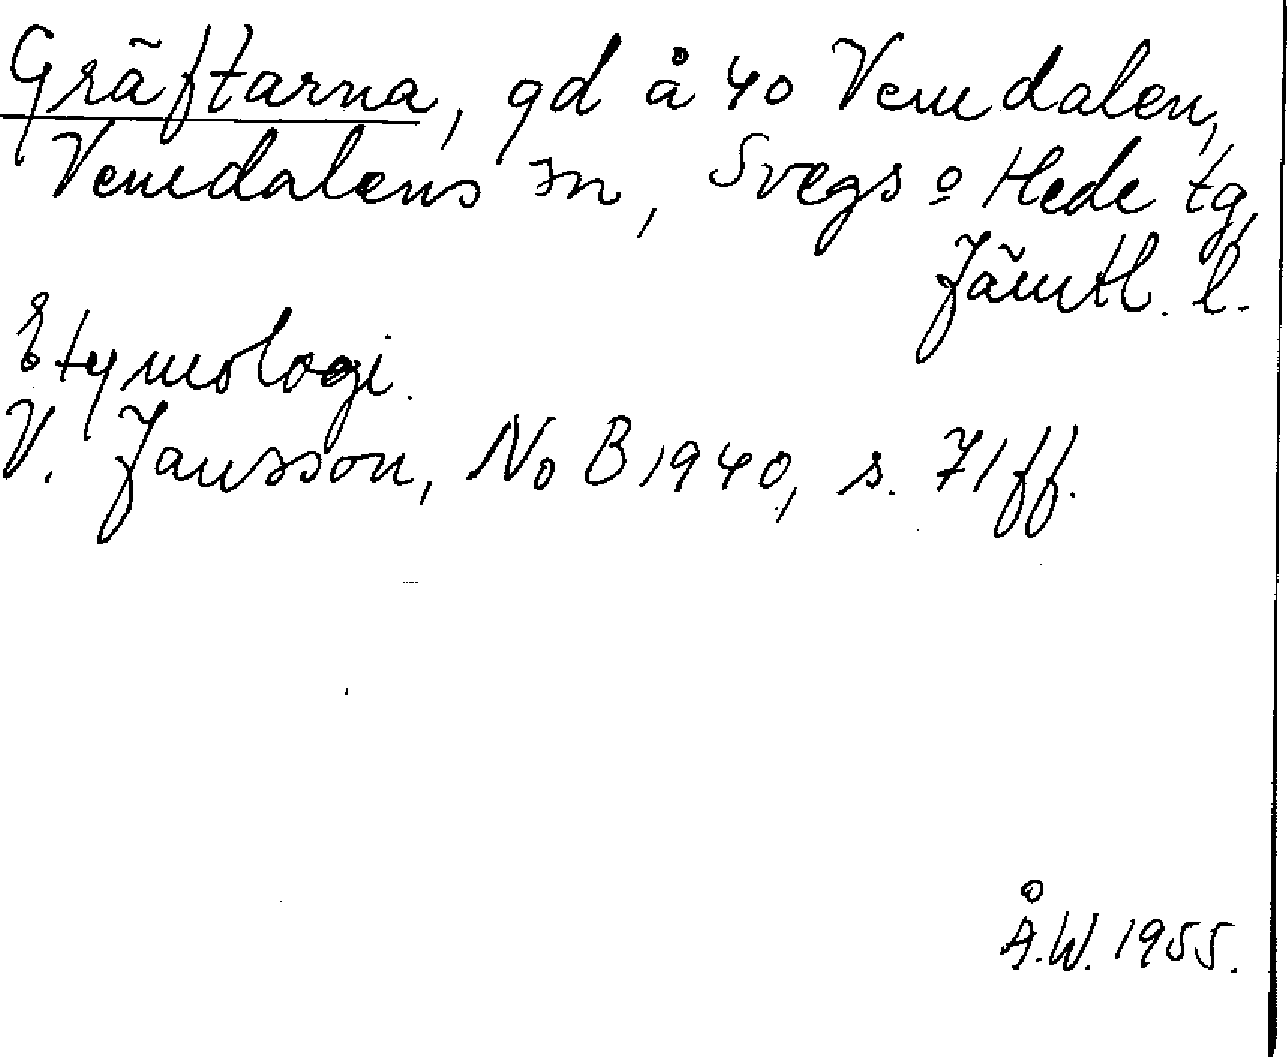 Gräftarna, gd å 40 Vemdalen,
Vemdalens sn, Svegs o Hede tg,
Jämtl. l.
Etymologi.
V. Jansson, NoB 1940, s. 71 ff.
Å.W. 1955.